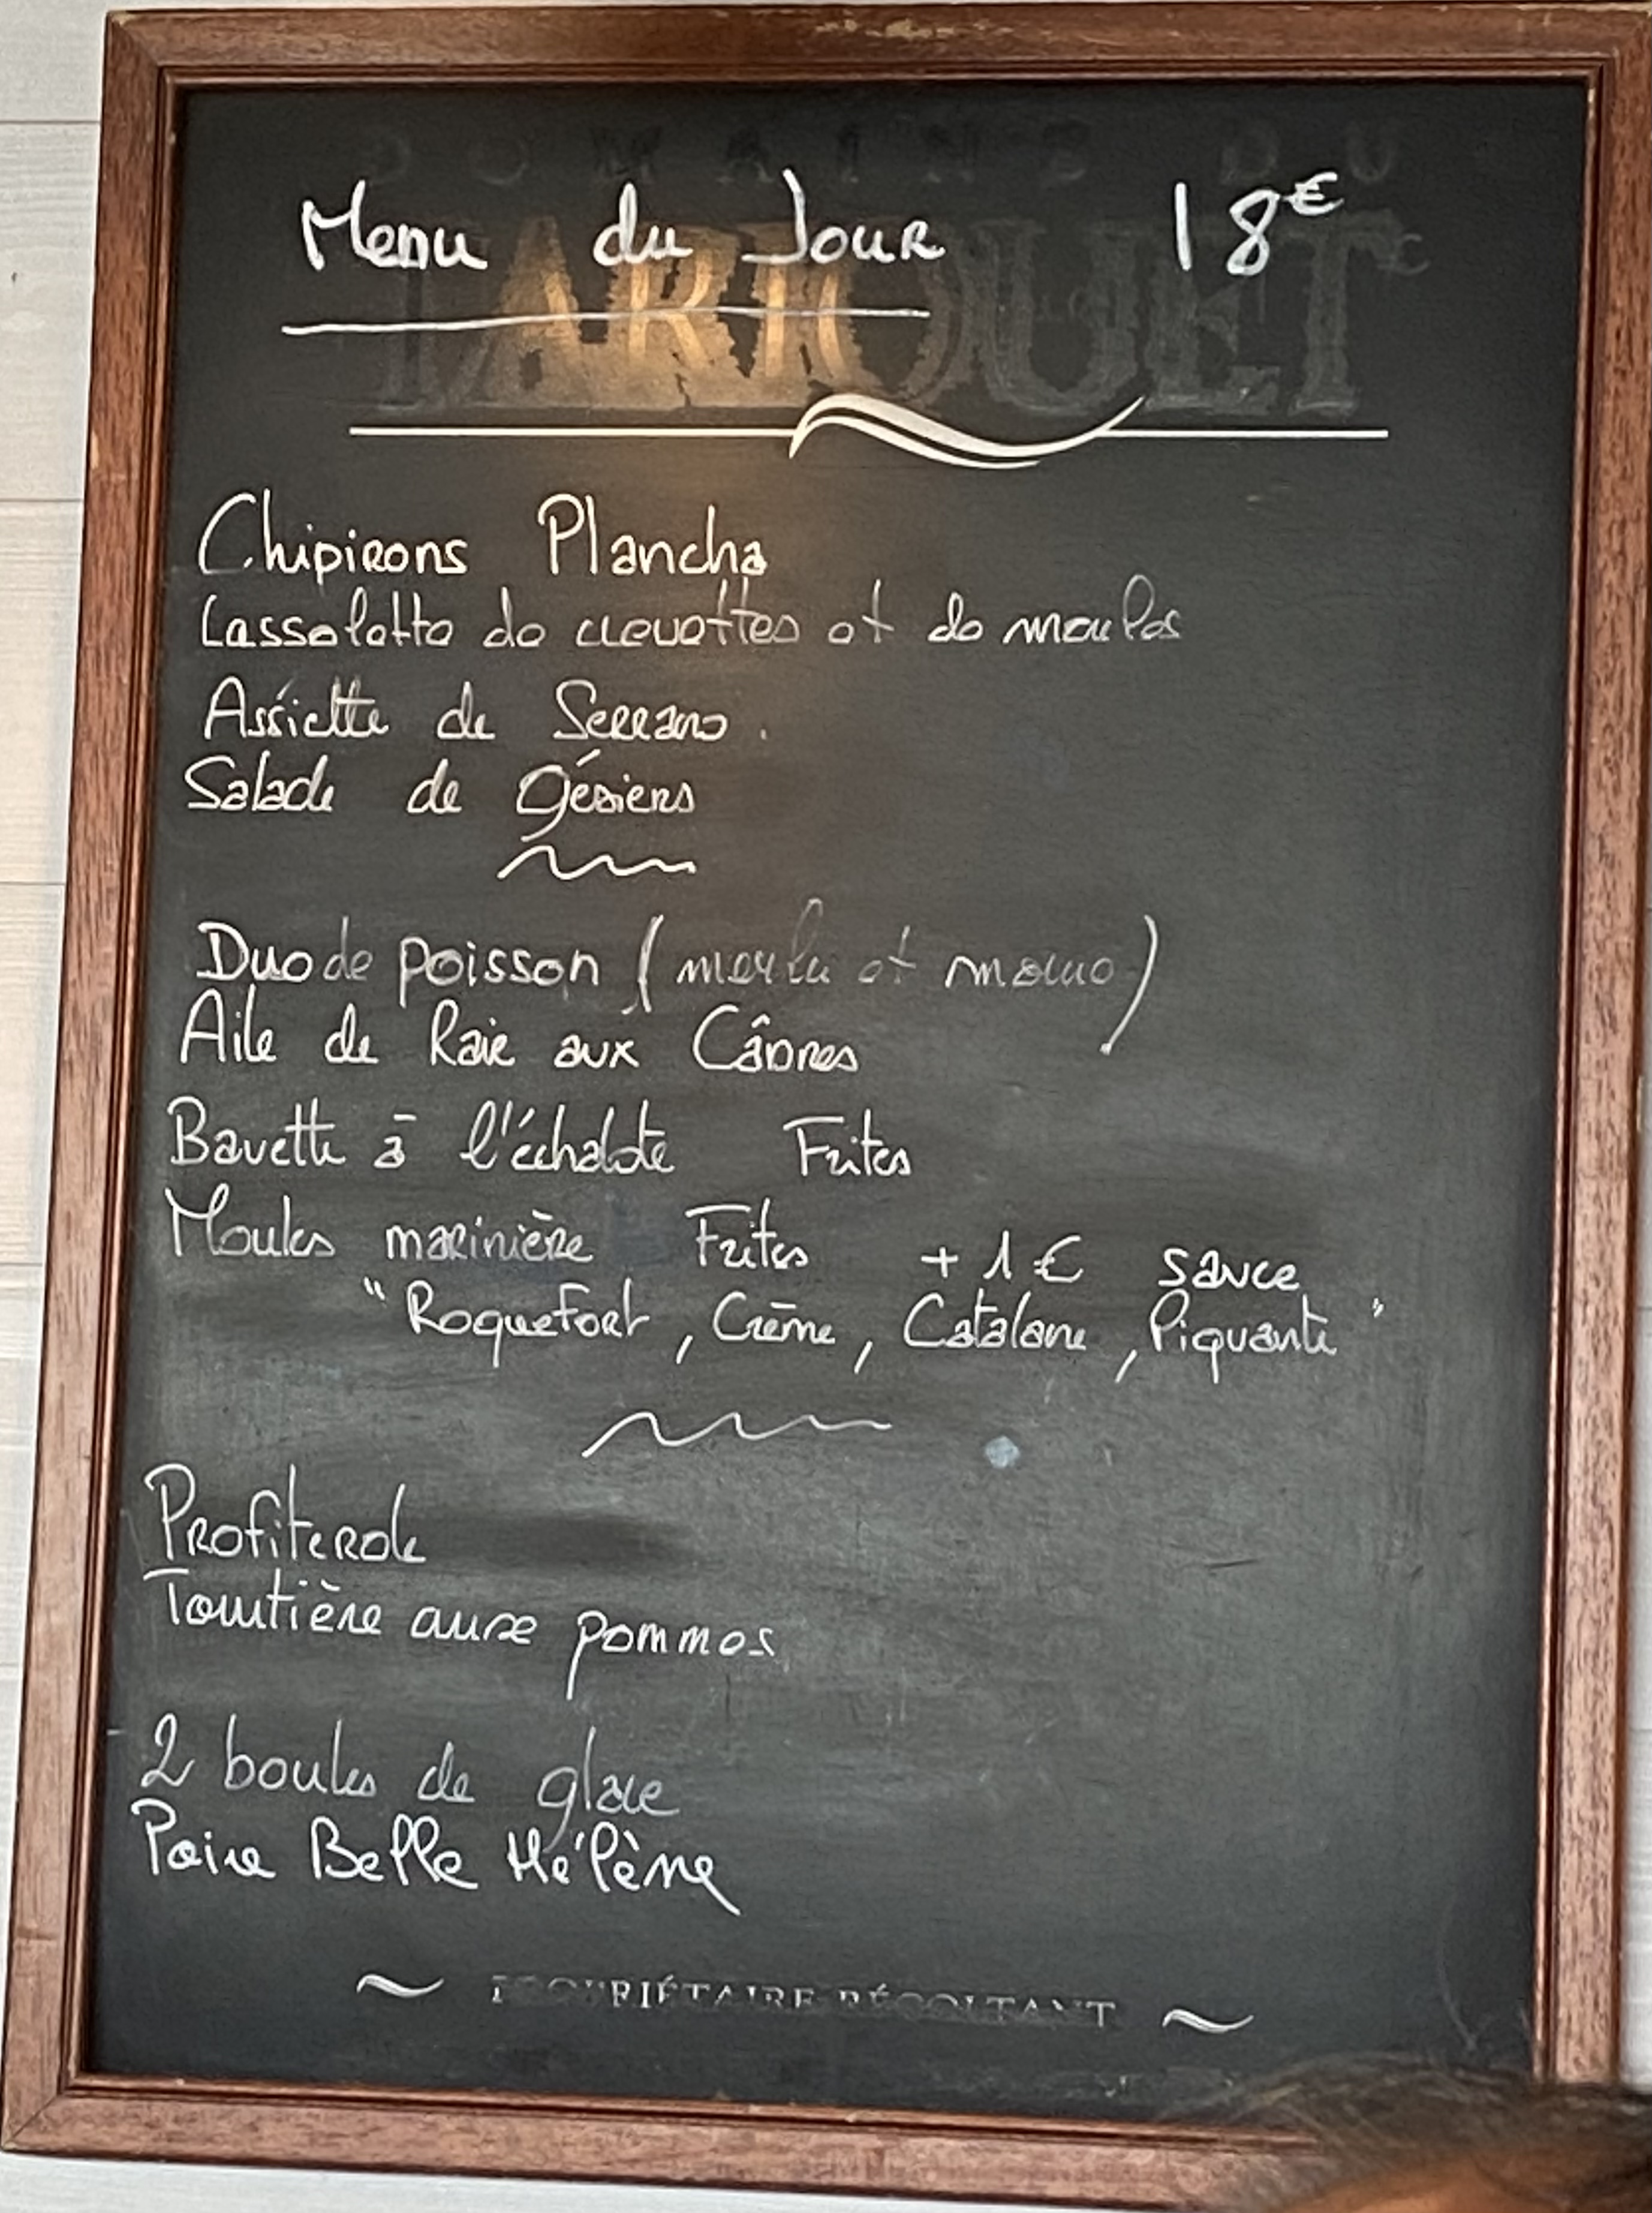 DOMAINE DU
TARIQUET
Menu du Jour 18€
Chipirons Plancha
Cassolette de crevettes et de moules
Assiette de Serrano.
Salade de Gésiers
Duo de poisson (merlu et morue)
Aile de Raie aux Câpres
Bavette à l'échalote Frites
Moules marinière Frites + 1€ sauce
"Roquefort, Crème, Catalane, Piquante"
Profiterole
Tourtière aux pommes
2 boules de glace
Poire Belle Hélène
PROPRIÉTAIRE RÉCOLTANT